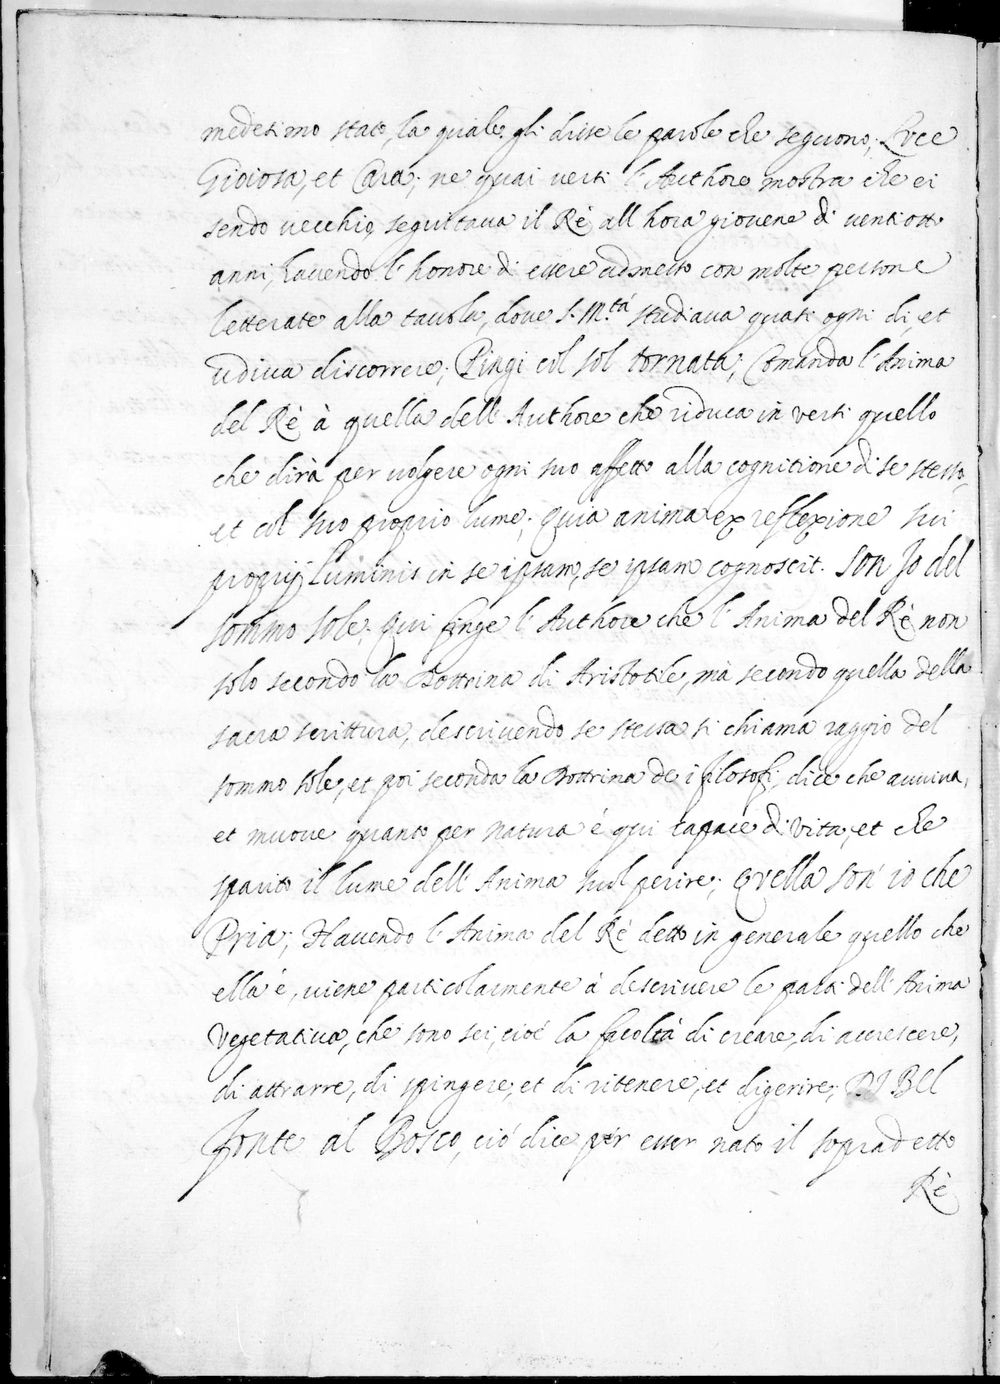 medesimo stato, la quale gli disse le parole che seguono; Luce
Gioiosa, et Cara; ne quai versi l'Authore mostra che es
sendo vecchio, seguitaua il Rè all hora giouene di uentiotto
anni, hauendo l'honore di essere admesso con molte persone
letterate alla tauola, doue S. M.tà studiaua quasi ogni dì, et
udiua discorrere; Pingi col sol tornata; Comanda l'Anima
del Rè à quella dell'Authore che riduca in versi quello
che dirà per uolgere ogni suo affetto alla cognitione di se stesso,
et col suo proprio lume; quia anima ex reflexione sui
proprij Luminis in se ipsam, se ipsam cognoscit. Son Io del
sommo sole; Qui finge l'Authore che l'Anima del Rè non
solo secondo la Dottrina di Aristotile, mà secondo quella della
sacra scrittura, descriuendo se stessa si chiama raggio del
sommo sole, et poi seconda la Dottrina de i filosofi, dice che auuiua,
et muoue quanto per natura é qui capace di vita, et che
sparito il lume dell'Anima suol perire; Quella son' io che
Pria; Hauendo l'Anima del Rè detto in generale quello che
ella é, uiene particolarmente à descriuere le parti dell'Anima
Vegetatiua, che sono sei, cioé la facoltà di creare, di accrescere,
di attrarre, di spingere, et di ritenere, et digerire; DI BEL
fonte al Bosco, ciò dice per esser nato il sopradetto
Rè